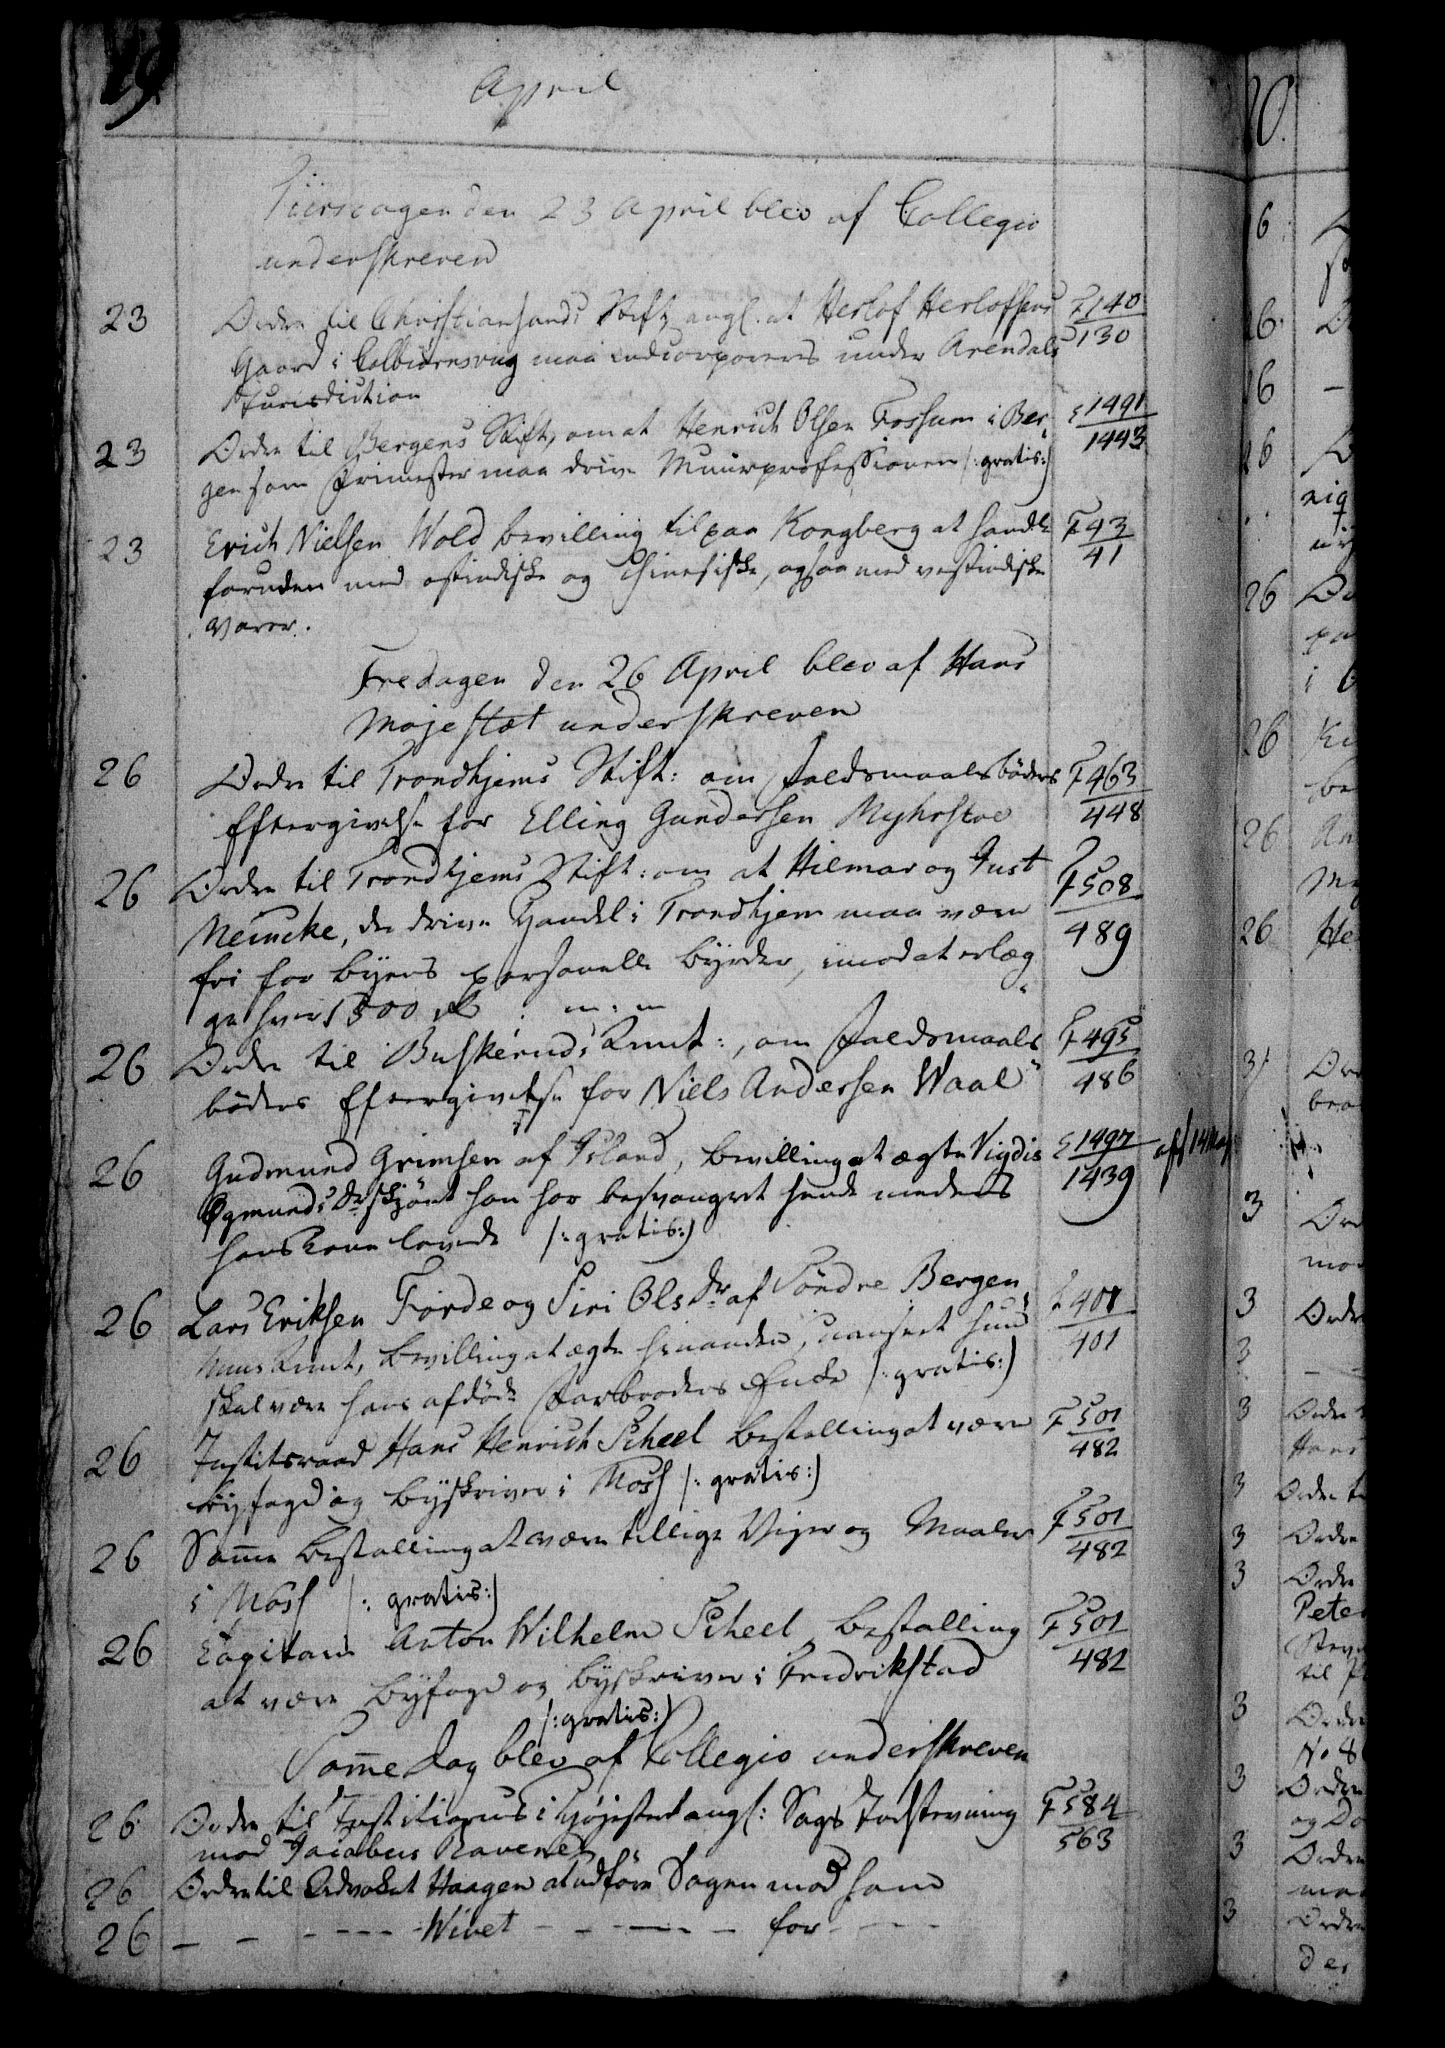 19.
April
Tiirsdagen den 23 April blev af Collegio
underskreven
23 Ordre til Christiansands Stift, angl. at Herlof Herlofsens F 1140
Gaard i Colbiørnsvig maa indcorporeres under Arendals 130
Jurisdiction
23 Ordre til Bergens Stift, om at Henrich Olsen Fossum i Ber- S 1491
gen som Frimester maa drive Muurprofessionen /:gratis:/ 1443
23 Erich Nielsen Wold bevilling til paa Kongberg at handle F 43
foruden med ostindiske og Chinesiske, ogsaa med vestindiske 41
Varer.
Fredagen den 26 April blev af Hans
Majestæt underskreven
26 Ordre til Trondhjems Stift: om Faldsmaalsbøders F 463
Eftergivelse for Elling Gundersen Myhrstve 448
26 Ordre til Trondhjems Stift: om at Hilmar og Just F 508
Meincke, der drive Handel i Trondhjem maa være 489
fri for byens personelle byrder, imod at erlæg-
ge hver 1500 rd m: m
26 Ordre til Buskeruds Amt:, om Faldsmaals F 495
bøders Eftergivelse for Niels Andersen Waal 486
26 Gudmund Grimsen af Island, bevilling at ægte Vigdis S 1497 afs 14 May
Ogmunds Dr skjønt han har besvangret hende medens 1439
hans Kone levede /:gratis:/
26 Lars Eriksen Førde og Siri Ols Dr af Søndre Bergen 401
huus Amt, bevilling at ægte hinanden, uanseet hun 401
skal være hans afdøde Farbroders Enke /:gratis:/
26 Justitsraad Hans Henrich Scheel bestalling at være F 501
byfogd og byskriver i Moss /:gratis:/ 482
26 Samme bestalling at være tillige Vejer og Maaler F 501
i Moss /:gratis:/ 482
26 Capitain Anton Wilhelm Scheel bestalling F 501
at være byfogd og byskriver i Fredrikstad 482
/:gratis:/
Samme Dag blev af Collegio underskreven
26 Ordre til Justitiarius i Højesteret angl: Sags Indstevning F 584
mod Jacobus Ravenes 563
26 Ordre til Advokat Haagen at udføre Sagen mod ham
26 — — - - - - - Wivet - - — - — for - - - -